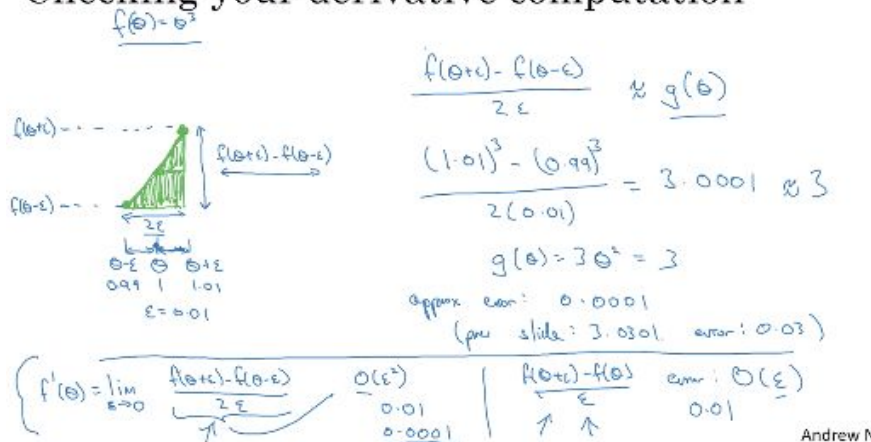 Checking your derivative computation
f(θ) = θ³
f(θ+ε)
f(θ-ε)
f(θ+ε) - f(θ-ε)
2ε
θ-ε θ θ+ε
0.99 1 1.01
ε = 0.01
f(θ+ε) - f(θ-ε) / 2ε ≈ g(θ)
(1.01)³ - (0.99)³ / 2(0.01) = 3.0001 ≈ 3
g(θ) = 3θ² = 3
approx error: 0.0001
(prev slide: 3.0301 error: 0.03)
f'(θ) = lim ε→0 f(θ+ε) - f(θ-ε) / 2ε
O(ε²)
0.01
0.0001
f(θ+ε) - f(θ) / ε
error: O(ε)
0.01
Andrew N